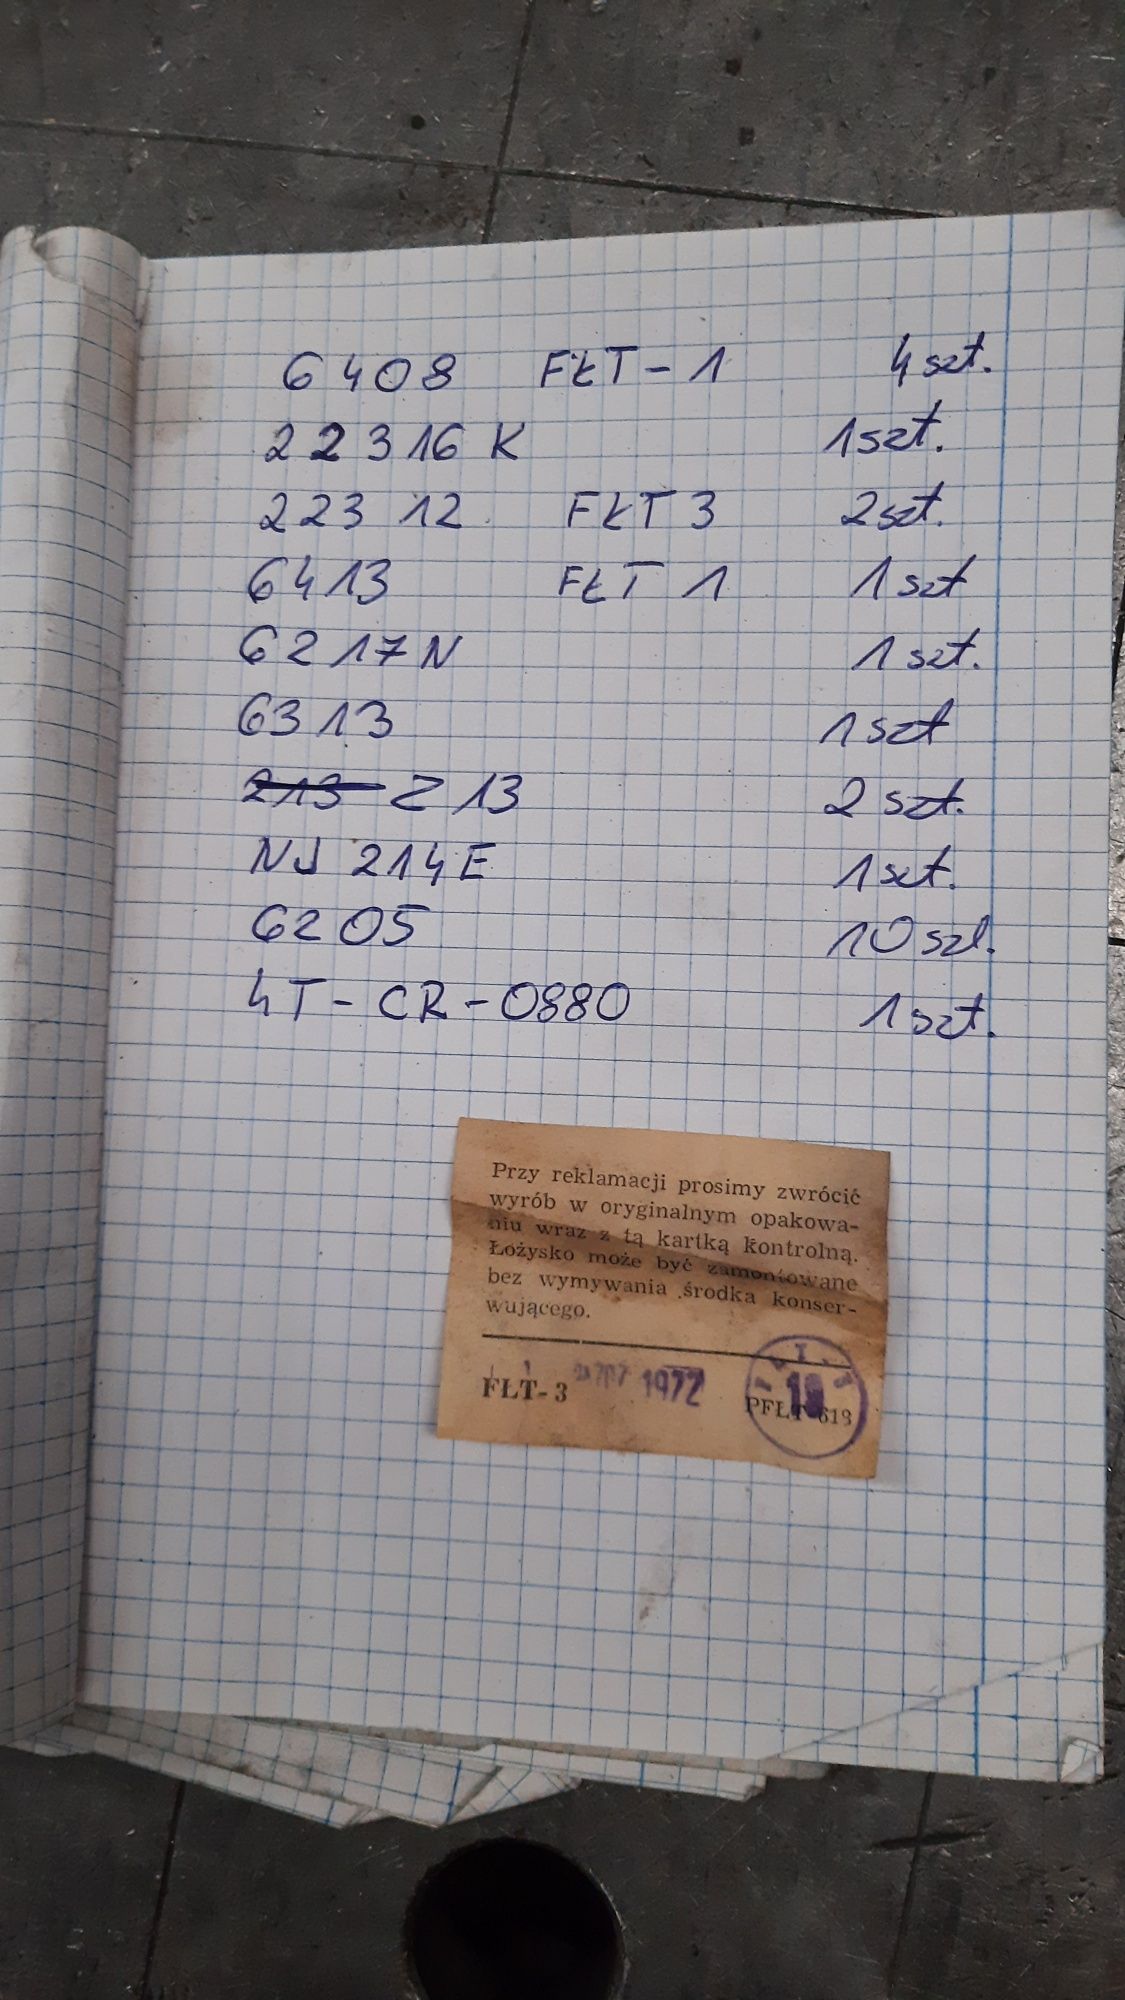 6408 FŁT-1 4 szt.
22316 K 1 szt.
22312 FŁT 3 2 szt.
6413 FŁT 1 1 szt
6217 N 1 szt.
6313 1 szt
213 Z 13 2 szt.
NJ 214 E 1 szt.
6205 10 szt.
4T-CR-0880 1 szt.
Przy reklamacji prosimy zwrócić
wyrób w oryginalnym opakowa-
niu wraz z tą kartką kontrolną.
Łożysko może być zamontowane
bez wymywania środka konser-
wującego.
FŁT-3 1972 PFŁT 613